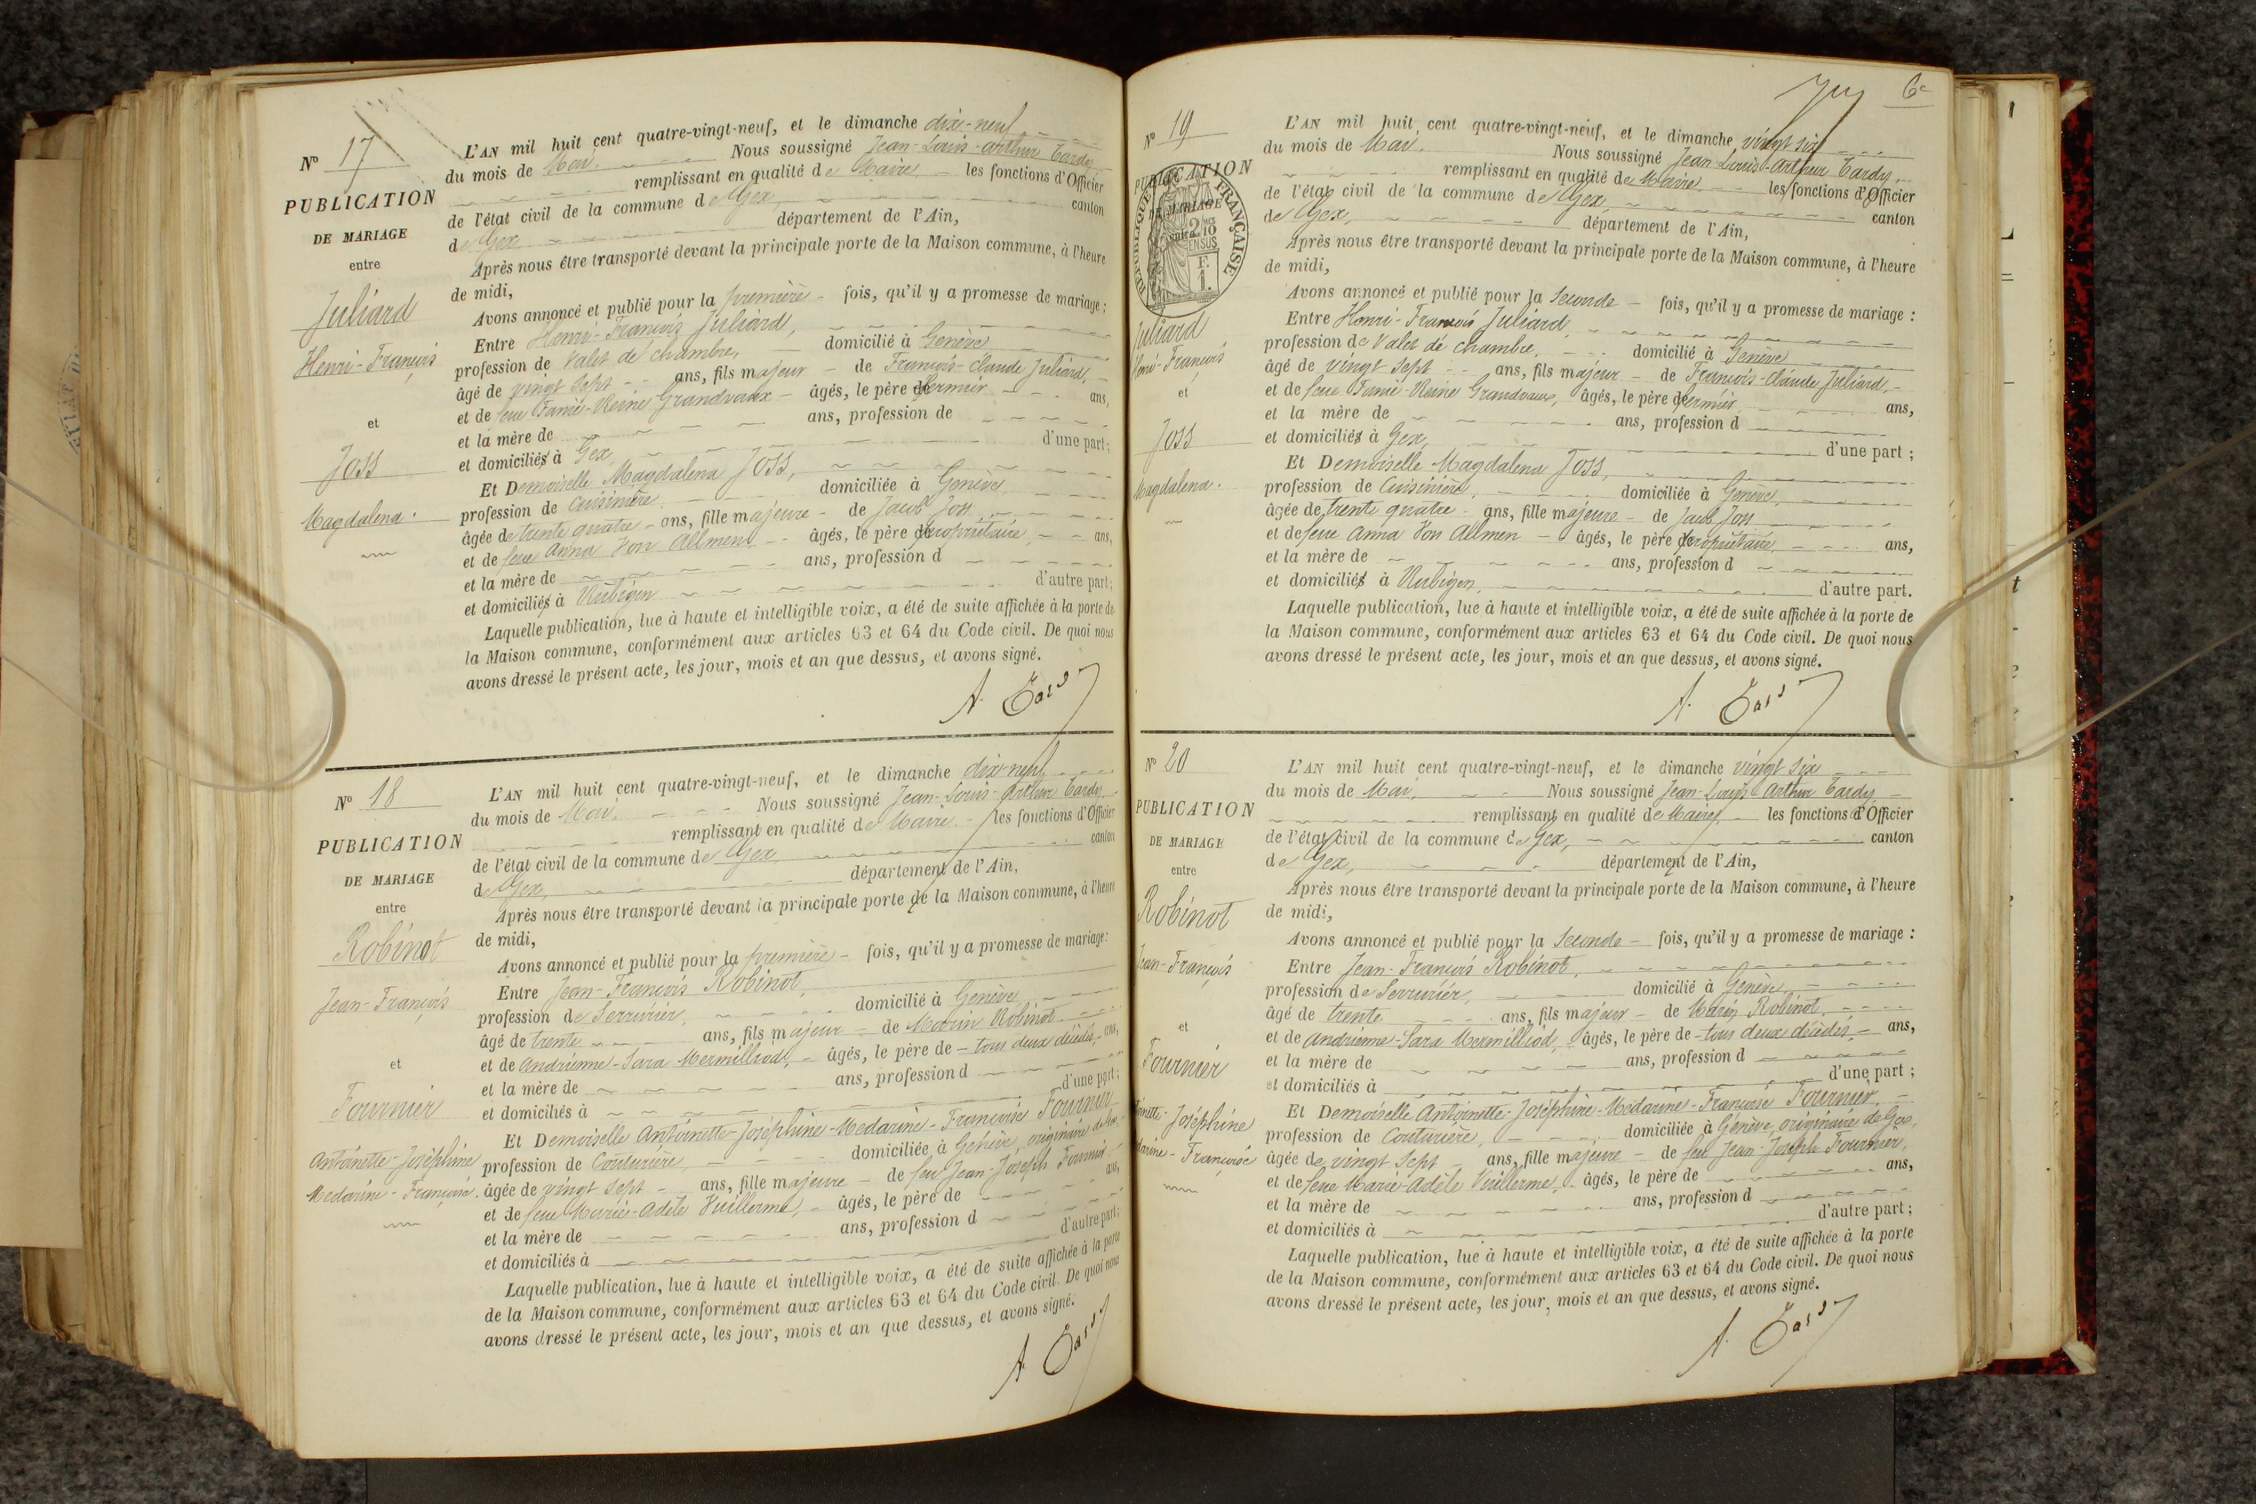 Nº 17
PUBLICATION
DE MARIAGE
entre
Juliard
Henri-François
et
Joss
Magdalena.
L'AN mil huit cent quatre-vingt-neuf, et le dimanche dix-neuf
du mois de Mai. Nous soussigné Jean-Louis-Arthur Tardy
remplissant en qualité de Maire les fonctions d'Officier
de l'état civil de la commune de Gex, canton
de Gex département de l'Ain,
Après nous être transporté devant la principale porte de la Maison commune, à l'heure
de midi,
Avons annoncé et publié pour la première fois, qu'il y a promesse de mariage:
Entre Henri-François Juliard,
profession de Valet de chambre, domicilié à Genève
âgé de vingt sept ans, fils majeur de François-Claude Juliard,
et de feue Fanie-Reine Grandvaux âgés, le père de fermier ans,
et la mère de ans, profession de
et domiciliés à Gex d'une part;
Et Demoiselle Magdalena Joss,
profession de Cuisinière domiciliée à Genève
âgée de trente quatre ans, fille majeure de Jacob Joss
et de feue Anna Von Allmen âgés, le père de propriétaire ans,
et la mère de ans, profession d
et domiciliés à Rubigen d'autre part;
Laquelle publication, lue à haute et intelligible voix, a été de suite affichée à la porte de
la Maison commune, conformément aux articles 63 et 64 du Code civil. De quoi nous
avons dressé le présent acte, les jour, mois et an que dessus, et avons signé.
A. Tardy
Nº 18
PUBLICATION
DE MARIAGE
entre
Robinot
Jean-François
et
Fournier
Antoinette-Joséphine
Medarine-Françoise.
L'AN mil huit cent quatre-vingt-neuf, et le dimanche dix-neuf
du mois de Mai. Nous soussigné Jean-Louis-Arthur Tardy,
remplissant en qualité de Maire les fonctions d'Officier
de l'état civil de la commune de Gex, canton
de Gex, département de l'Ain,
Après nous être transporté devant la principale porte de la Maison commune, à l'heure
de midi,
Avons annoncé et publié pour la première fois, qu'il y a promesse de mariage:
Entre Jean-François Robinot,
profession de Serrurier, domicilié à Genève
âgé de trente ans, fils majeur de Marin Robinot
et de Andrienne-Sara Mermilliod, âgés, le père de tous deux décédés, ans,
et la mère de ans, profession d
et domiciliés à d'une part;
Et Demoiselle Antoinette-Joséphine-Medarine-Françoise Fournier
profession de Couturière, domiciliée à Genève, originaire de Gex,
âgée de vingt sept ans, fille majeure de feu Jean-Joseph Fournier
et de feue Marie-Adèle Vuillerme, âgés, le père de ans,
et la mère de ans, profession d
et domiciliés à d'autre part;
Laquelle publication, lue à haute et intelligible voix, a été de suite affichée à la porte
de la Maison commune, conformément aux articles 63 et 64 du Code civil. De quoi nous
avons dressé le présent acte, les jour, mois et an que dessus, et avons signé.
A. Tardy
6e
Nº 19
PUBLICATION
DE MARIAGE
entre
RÉPUBLIQUE FRANÇAISE
2/10
EN SUS
F.
1.
Juliard
Henri-François
et
Joss
Magdalena.
L'AN mil huit cent quatre-vingt-neuf, et le dimanche vingt six
du mois de Mai. Nous soussigné Jean-Louis-Arthur Tardy,
remplissant en qualité de Maire les fonctions d'Officier
de l'état civil de la commune de Gex, canton
de Gex, département de l'Ain,
Après nous être transporté devant la principale porte de la Maison commune, à l'heure
de midi,
Avons annoncé et publié pour la Seconde fois, qu'il y a promesse de mariage :
Entre Henri-François Juliard,
profession de Valet de chambre, domicilié à Genève
âgé de vingt sept ans, fils majeur de François-Claude Juliard,
et de feue Fanie-Reine Grandvaux, âgés, le père de fermier ans,
et la mère de ans, profession d
et domiciliés à Gex, d'une part ;
Et Demoiselle Magdalena Joss,
profession de Cuisinière, domiciliée à Genève,
âgée de trente quatre ans, fille majeure de Jacob Joss
et de feue Anna Von Allmen âgés, le père de propriétaire ans,
et la mère de ans, profession d
et domiciliés à Rubigen, d'autre part.
Laquelle publication, lue à haute et intelligible voix, a été de suite affichée à la porte de
la Maison commune, conformément aux articles 63 et 64 du Code civil. De quoi nous
avons dressé le présent acte, les jour, mois et an que dessus, et avons signé.
A. Tardy
Nº 20
PUBLICATION
DE MARIAGE
entre
Robinot
Jean-François
et
Fournier
Joséphine
Françoise
L'AN mil huit cent quatre-vingt-neuf, et le dimanche vingt six
du mois de Mai, Nous soussigné Jean-Louis Arthur Tardy,
remplissant en qualité de Maire, les fonctions d'Officier
de l'état civil de la commune de Gex, canton
de Gex, département de l'Ain,
Après nous être transporté devant la principale porte de la Maison commune, à l'heure
de midi,
Avons annoncé et publié pour la Seconde fois, qu'il y a promesse de mariage :
Entre Jean-François Robinot,
profession de Serrurier, domicilié à Genève,
âgé de trente ans, fils majeur de Marin Robinot,
et de Andrienne-Sara Mermilliod, âgés, le père de tous deux décédés, ans,
et la mère de ans, profession d
et domiciliés à d'une part ;
Et Demoiselle Antoinette-Joséphine-Medarine-Françoise Fournier,
profession de Couturière, domiciliée à Genève, originaire de Gex,
âgée de vingt sept ans, fille majeure de feu Jean-Joseph Fournier,
et de feue Marie-Adèle Vuillerme, âgés, le père de ans,
et la mère de ans, profession d
et domiciliés à d'autre part ;
Laquelle publication, lue à haute et intelligible voix, a été de suite affichée à la porte
de la Maison commune, conformément aux articles 63 et 64 du Code civil. De quoi nous
avons dressé le présent acte, les jour, mois et an que dessus, et avons signé.
A. Tardy